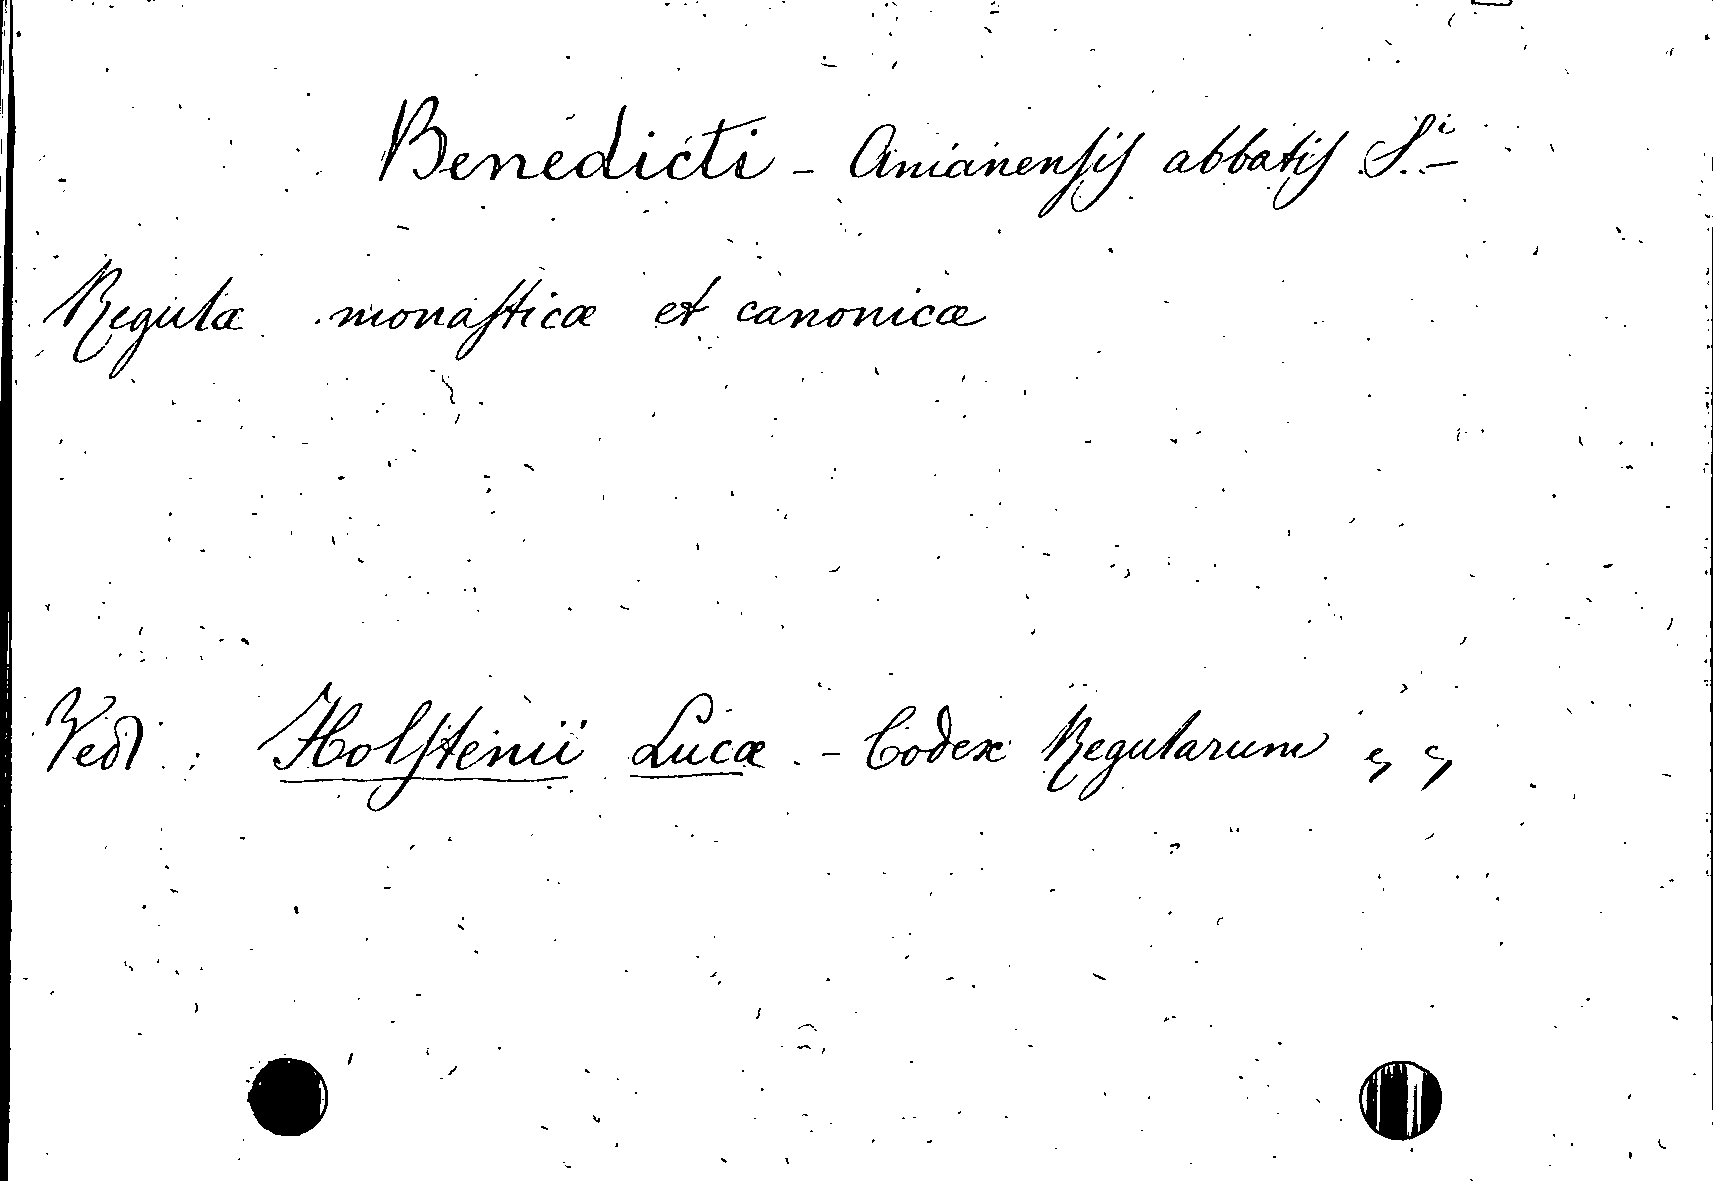 Benedicti - Anianensis abbatis S.i
Regulæ monasticæ et canonicæ
Vedi: Holstenii Lucæ. - Codex Regularum